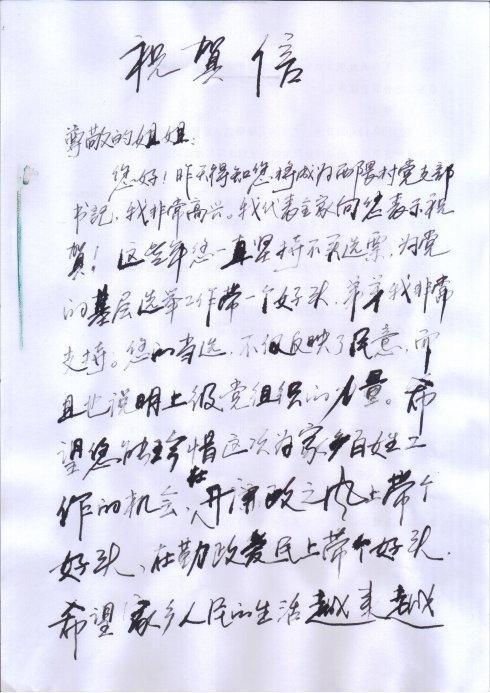 祝贺信
尊敬的姐姐：
您好！昨天得知您将成为西隈村党支部
书记，我非常高兴。我代表全家向您表示祝
贺！这些年您一直坚持不买选票，为党
的基层选举工作带一个好头，弟弟我非常
支持。您的当选，不仅反映了民意，而
且也说明上级党组织的力量。希
望您能珍惜这次为家乡百姓工
作的机会，在廉政之风上带个
好头，在勤政爱民上带个好头。
希望家乡人民的生活越来越